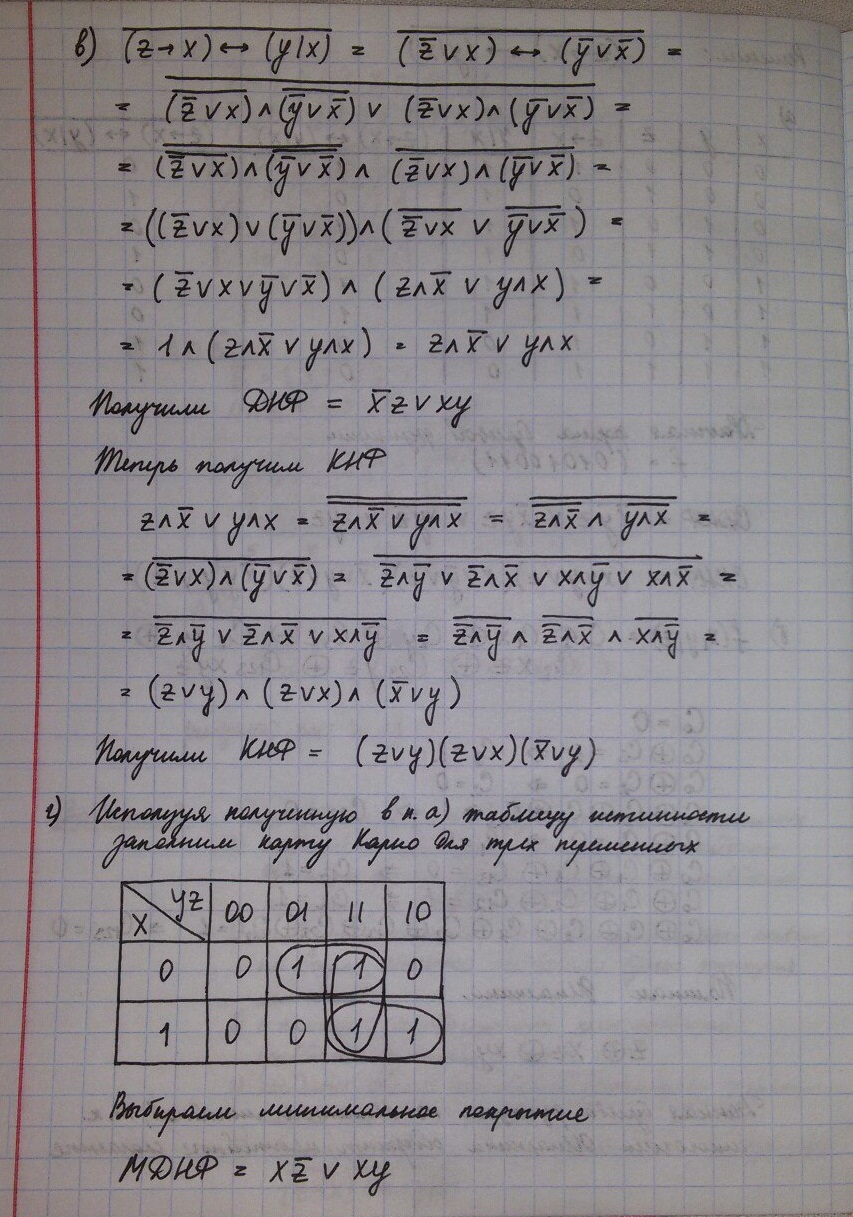 в) $\overline{(z \to x) \leftrightarrow (y|x)} = \overline{(\bar{z} \vee x) \leftrightarrow (\bar{y} \vee \bar{x})} =$
$= \overline{\overline{(\bar{z} \vee x)} \wedge \overline{(\bar{y} \vee \bar{x})} \vee (\bar{z} \vee x) \wedge (\bar{y} \vee \bar{x})} =$
$= \overline{\overline{(\bar{z} \vee x)} \wedge \overline{(\bar{y} \vee \bar{x})}} \wedge \overline{(\bar{z} \vee x) \wedge (\bar{y} \vee \bar{x})} =$
$= ((\bar{z} \vee x) \vee (\bar{y} \vee \bar{x})) \wedge (\overline{\bar{z} \vee x} \vee \overline{\bar{y} \vee \bar{x}}) =$
$= (\bar{z} \vee x \vee \bar{y} \vee \bar{x}) \wedge (z \wedge \bar{x} \vee y \wedge x) =$
$= 1 \wedge (z \wedge \bar{x} \vee y \wedge x) = z \wedge \bar{x} \vee y \wedge x$
Получили ДНФ = $\bar{x} z \vee x y$
Теперь получим КНФ
$z \wedge \bar{x} \vee y \wedge x = \overline{\overline{z \wedge \bar{x} \vee y \wedge x}} = \overline{\overline{z \wedge \bar{x}} \wedge \overline{y \wedge x}} =$
$= \overline{(\bar{z} \vee x) \wedge (\bar{y} \vee \bar{x})} = \overline{\bar{z} \wedge \bar{y} \vee \bar{z} \wedge \bar{x} \vee x \wedge \bar{y} \vee x \wedge \bar{x}} =$
$= \overline{\bar{z} \wedge \bar{y} \vee \bar{z} \wedge \bar{x} \vee x \wedge \bar{y}} = \overline{\bar{z} \wedge \bar{y}} \wedge \overline{\bar{z} \wedge \bar{x}} \wedge \overline{x \wedge \bar{y}} =$
$= (z \vee y) \wedge (z \vee x) \wedge (\bar{x} \vee y)$
Получили КНФ = $(z \vee y)(z \vee x)(\bar{x} \vee y)$
г) Используя полученную в п. а) таблицу истинности
заполним карту Карно для трёх переменных
x yz 00 01 11 10
0 0 1 1 0
1 0 0 1 1
Выбираем минимальное покрытие
МДНФ = $x \bar{z} \vee x y$